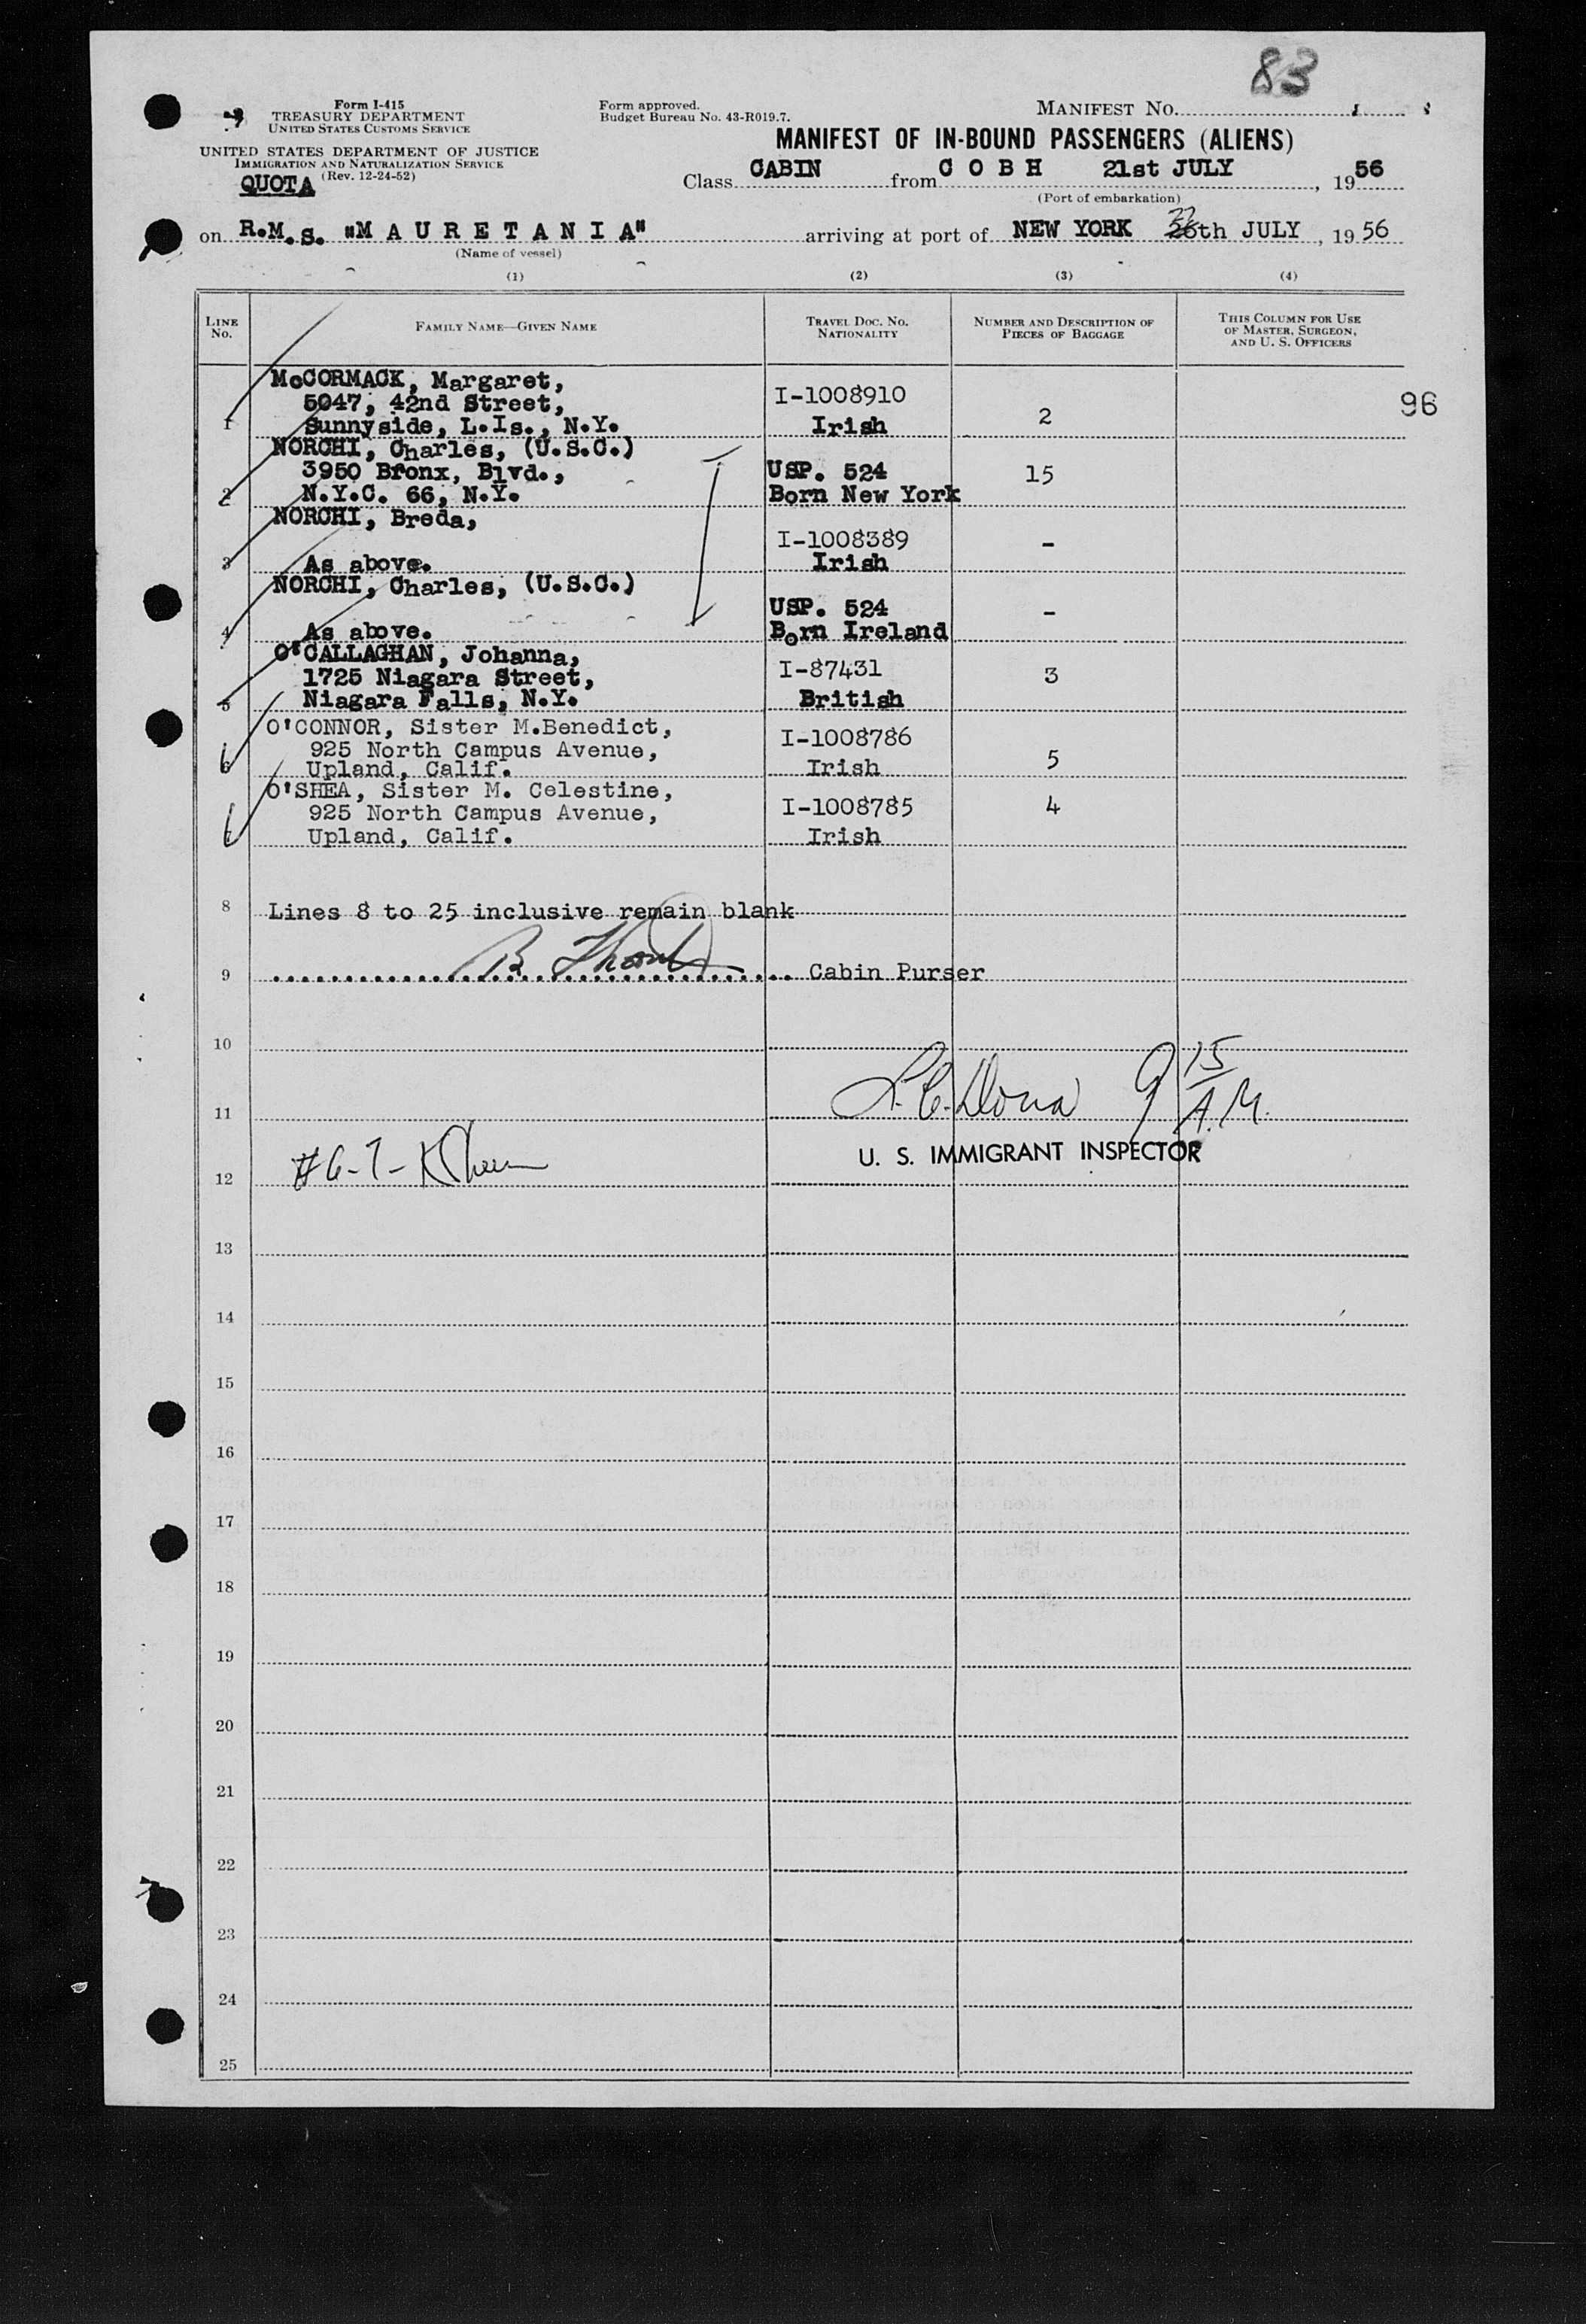 83
Form I-415
TREASURY DEPARTMENT
UNITED STATES CUSTOMS SERVICE
UNITED STATES DEPARTMENT OF JUSTICE
IMMIGRATION AND NATURALIZATION SERVICE
(Rev. 12-24-52)
QUOTA
Form approved.
Budget Bureau No. 43-R019.7.
MANIFEST No. 1
MANIFEST OF IN-BOUND PASSENGERS (ALIENS)
Class CABIN from C O B H 21st JULY, 1956
(Port of embarkation)
on R.M.S. "M A U R E T A N I A" arriving at port of NEW YORK 27 26th JULY, 1956
(Name of vessel)
(1) (2) (3) (4)
LINE No. FAMILY NAME—GIVEN NAME TRAVEL DOC. NO. NATIONALITY NUMBER AND DESCRIPTION OF PIECES OF BAGGAGE THIS COLUMN FOR USE OF MASTER, SURGEON, AND U. S. OFFICERS
McCORMACK, Margaret,
5047, 42nd Street, I-1008910 96
1 Sunnyside, L.Is., N.Y. Irish 2
NORCHI, Charles, (U.S.C.)
3950 Bronx, Blvd., USP. 524 15
2 N.Y.C. 66, N.Y. Born New York
NORCHI, Breda,
I-1008389 -
3 As above. Irish
NORCHI, Charles, (U.S.C.)
USP. 524 -
4 As above. Born Ireland
O'CALLAGHAN, Johanna,
1725 Niagara Street, I-87431 3
5 Niagara Falls, N.Y. British
O'CONNOR, Sister M.Benedict,
925 North Campus Avenue, I-1008786 5
6 Upland, Calif. Irish
O'SHEA, Sister M. Celestine,
925 North Campus Avenue, I-1008785 4
Upland, Calif. Irish
8 Lines 8 to 25 inclusive remain blank
9 B. Cabin Purser
10
9 15/A.M.
11
U. S. IMMIGRANT INSPECTOR
12 #6-7-
13
14
15
16
17
18
19
20
21
22
23
24
25